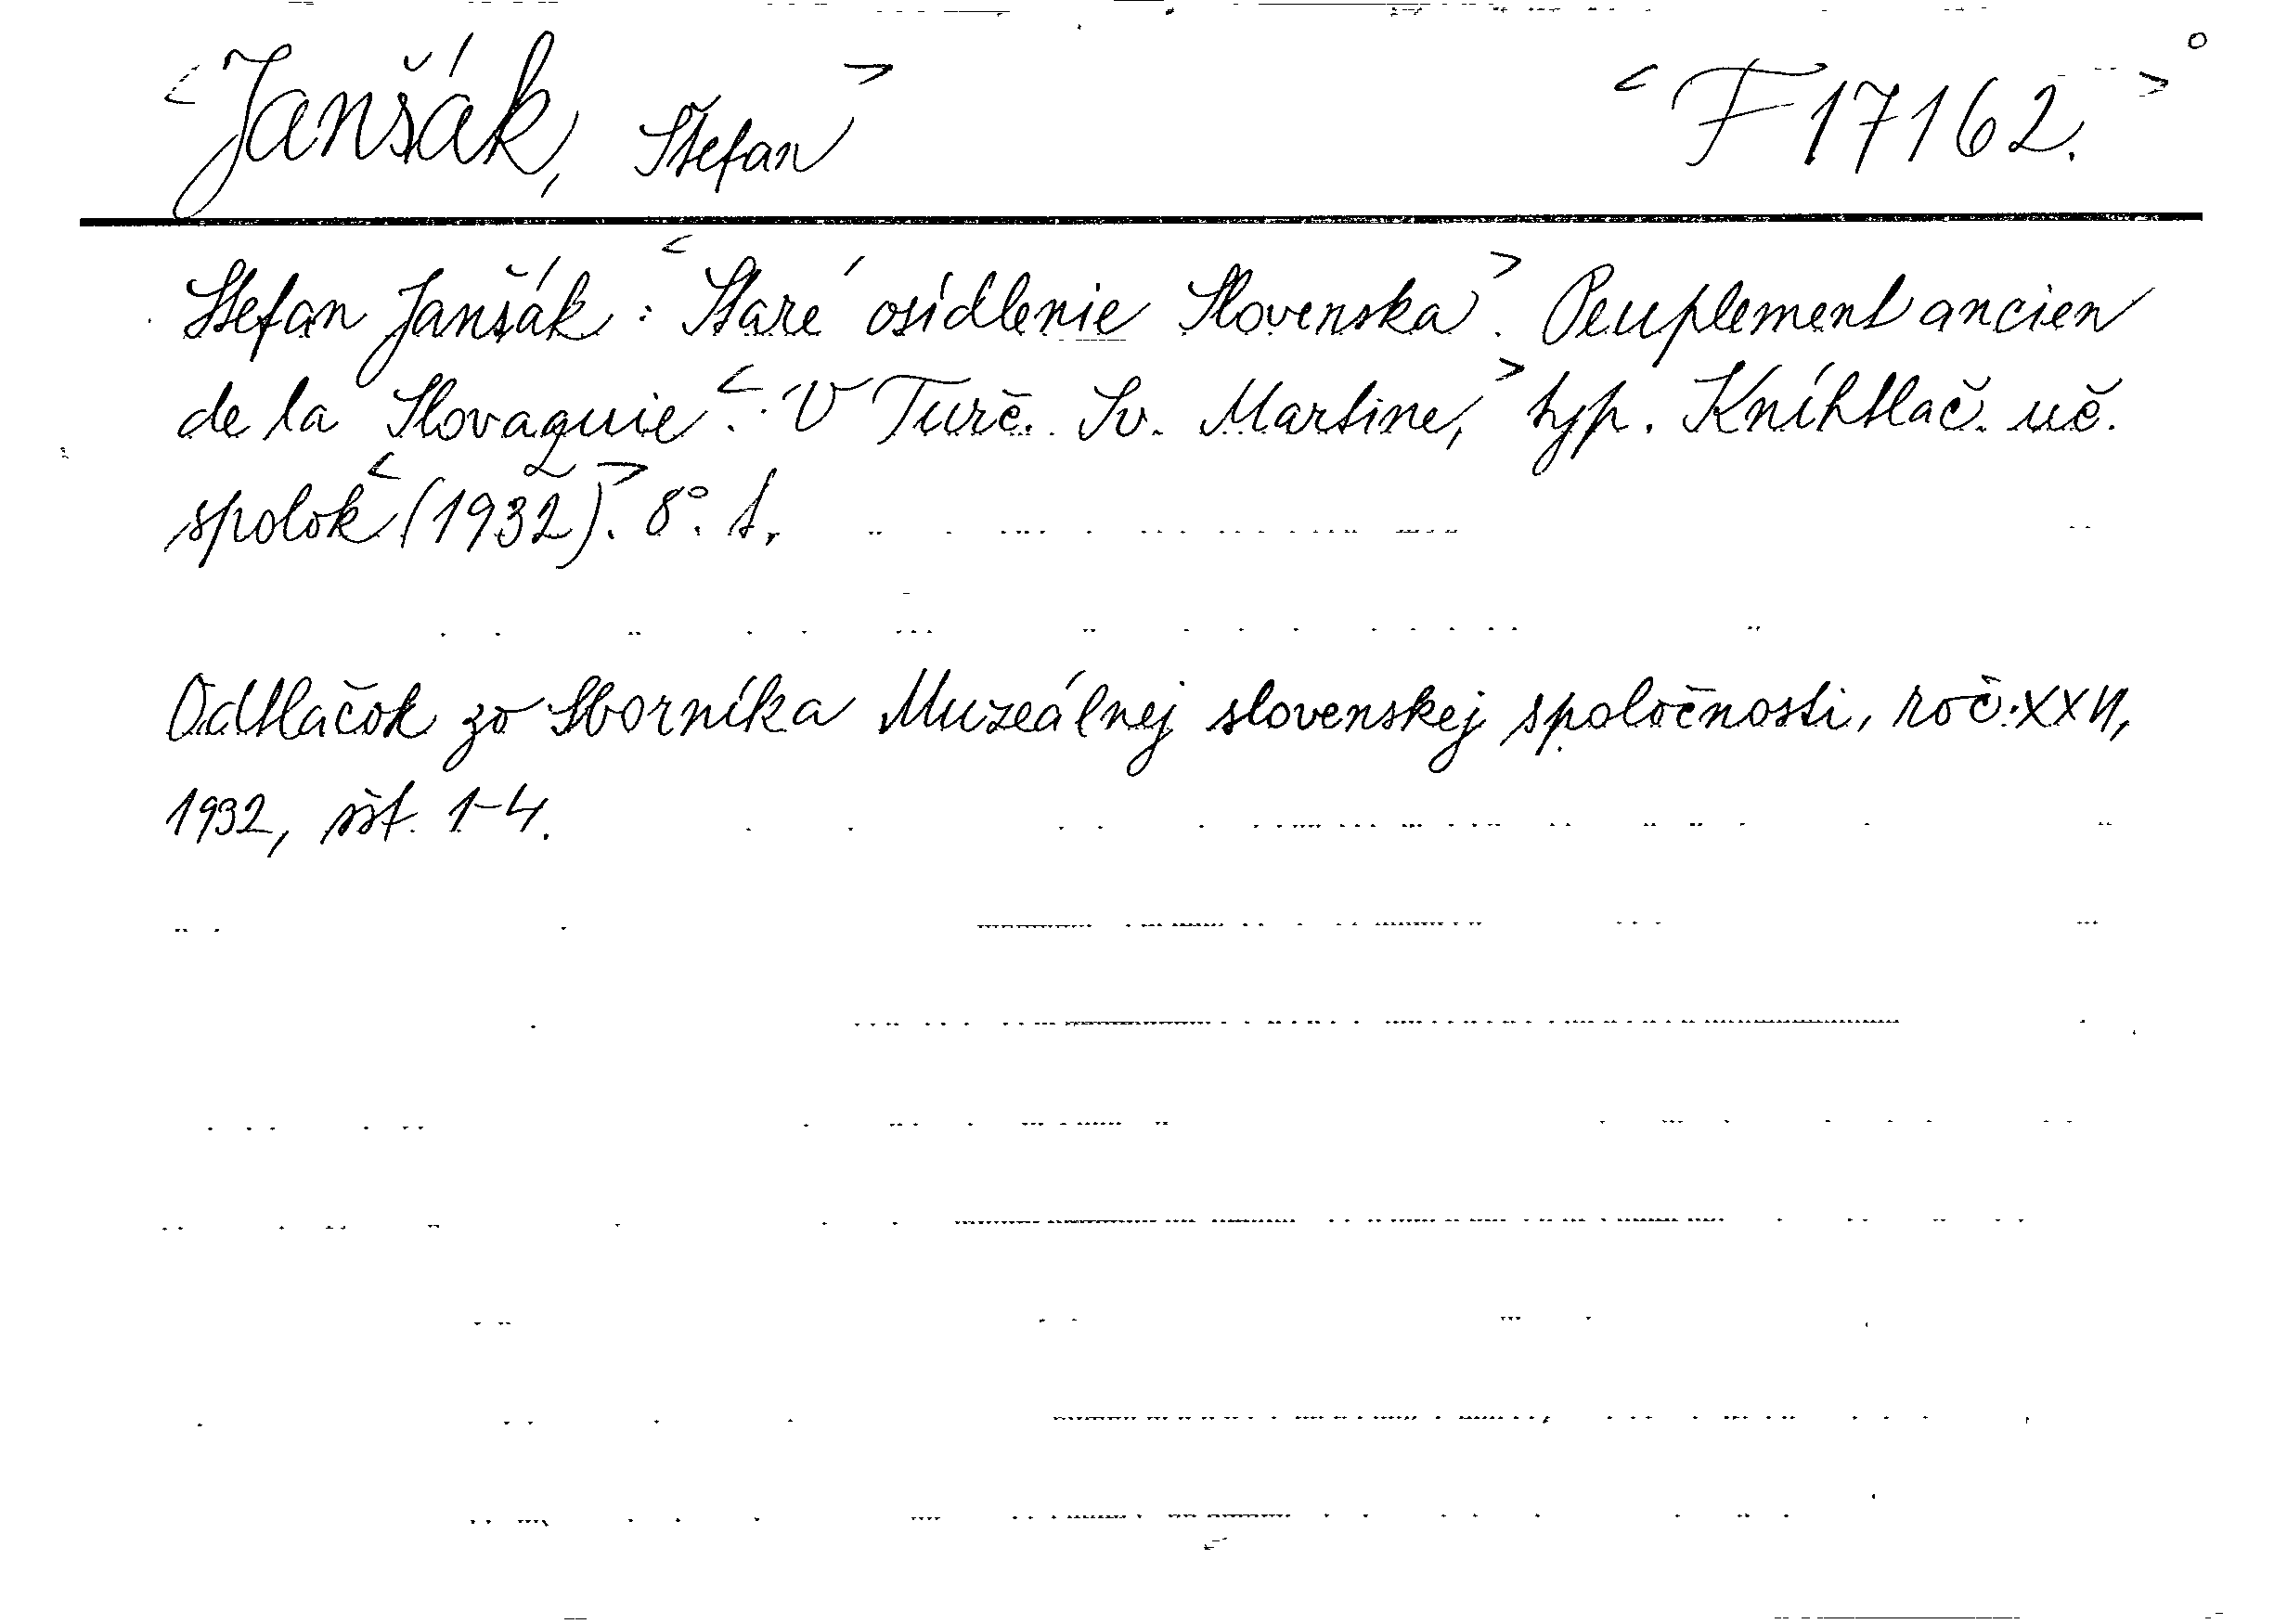 <Janšák, Štefan> <F 17162.>
Stefan Janšák: <Staré osídlenie Slovenska>. Peuplement ancien
de la Slovaquie. <V Turč. Sv. Martine,> typ. Kníhtlač. uč.
spolok <(1932).> 8°.
Odtlačok zo Sborníka Muzeálnej slovenskej spoločnosti, roč.
1932, 1-4.